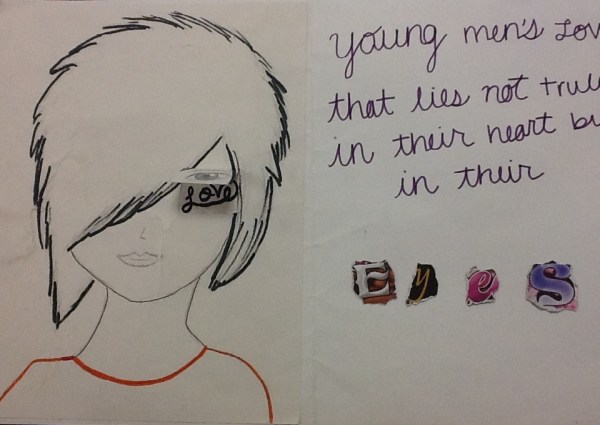 Love
Young men's
that lies not
in their heart
in their
Eyes